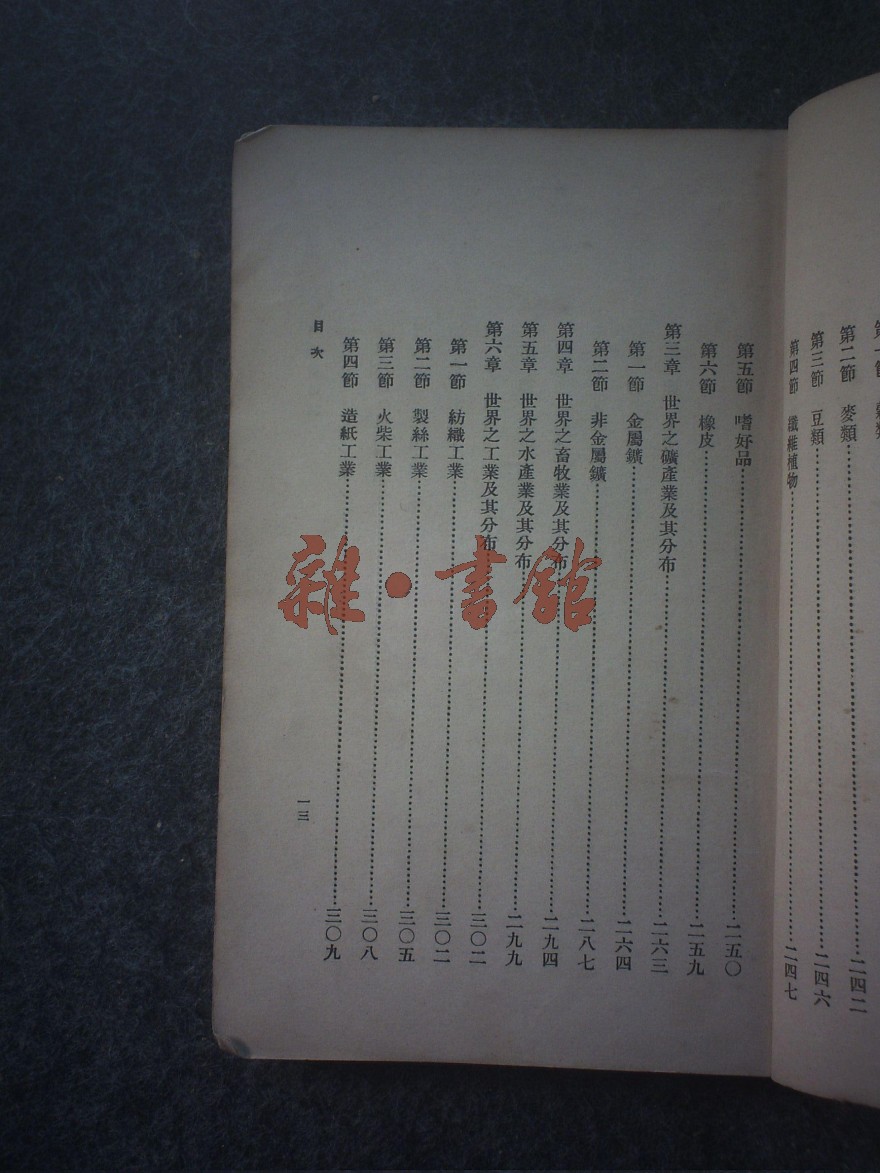 第二節　麥類……二四二
第三節　豆類……二四六
第四節　纖維植物……二四七
第五節　嗜好品……二五〇
第六節　橡皮……二五九
第三章　世界之礦產業及其分布……二六三
第一節　金屬鑛……二六四
第二節　非金屬鑛……二八七
第四章　世界之畜牧業及其分布……二九四
第五章　世界之水產業及其分布……二九九
第六章　世界之工業及其分布……三〇二
第一節　紡織工業……三〇二
第二節　製絲工業……三〇五
第三節　火柴工業……三〇八
第四節　造紙工業……三〇九
目次
一三
雜·書館